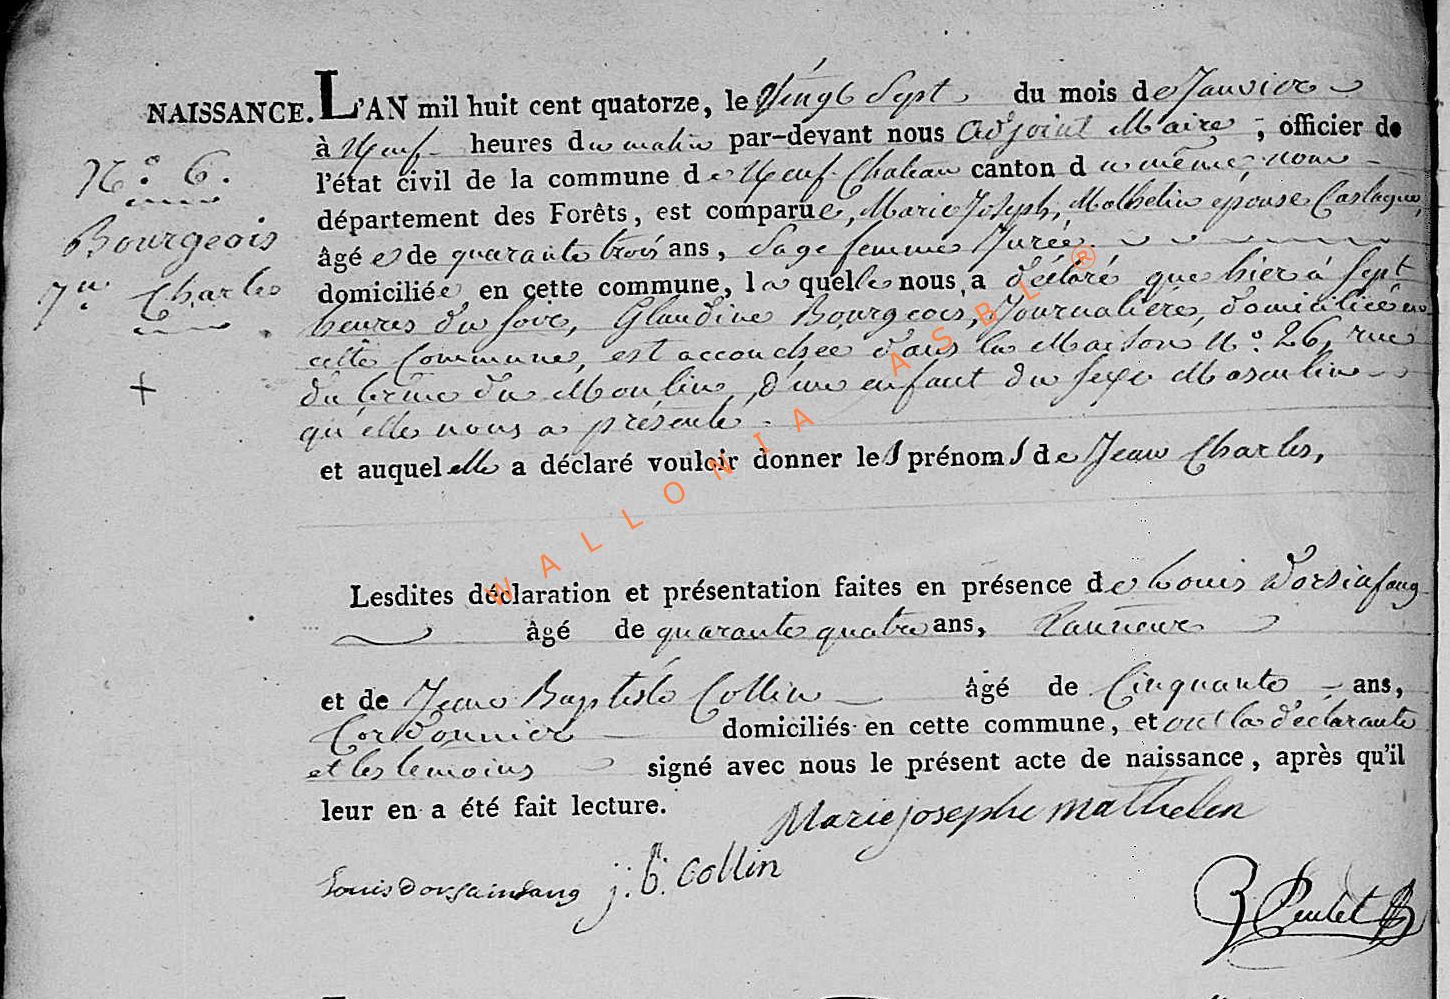 NAISSANCE. L'AN mil huit cent quatorze, le Vingt Sept du mois de Janvier
à Neuf heures du matin par-devant nous adjoint Maire, officier de
N.° 6.
l'état civil de la commune de Neuf-Chateau canton du même nom
département des Forêts, est comparue, Marie Joseph, Mathelin epouse Castagne,
Bourgeois
âgée de quarante trois ans, Sage femme Jurée
Jn Charles
domiciliée en cette commune, laquelle nous a déclaré que hier à Sept
heures du soir, Glaudine Bourgeois, Journalière, domiciliée en
cette Commune, est accouchée dans la Maison N.° 26, rue
+
du du Moulin, d'un enfant du sexe Masculin
qu'elle nous a présenté.
et auquel elle a déclaré vouloir donner les prénoms de Jean Charles,
Lesdites déclaration et présentation faites en présence de Louis Dorsinfang
âgé de quarante quatre ans, Tanneur
et de Jean Baptiste Collin âgé de Cinquante ans,
Cordonnier domiciliés en cette commune, et ont la déclarante
et les temoins signé avec nous le présent acte de naissance, après qu'il
leur en a été fait lecture.
Marie josephe mathelin
Louis dorsainfang j. b. collin
WALLONIA ASBL ®